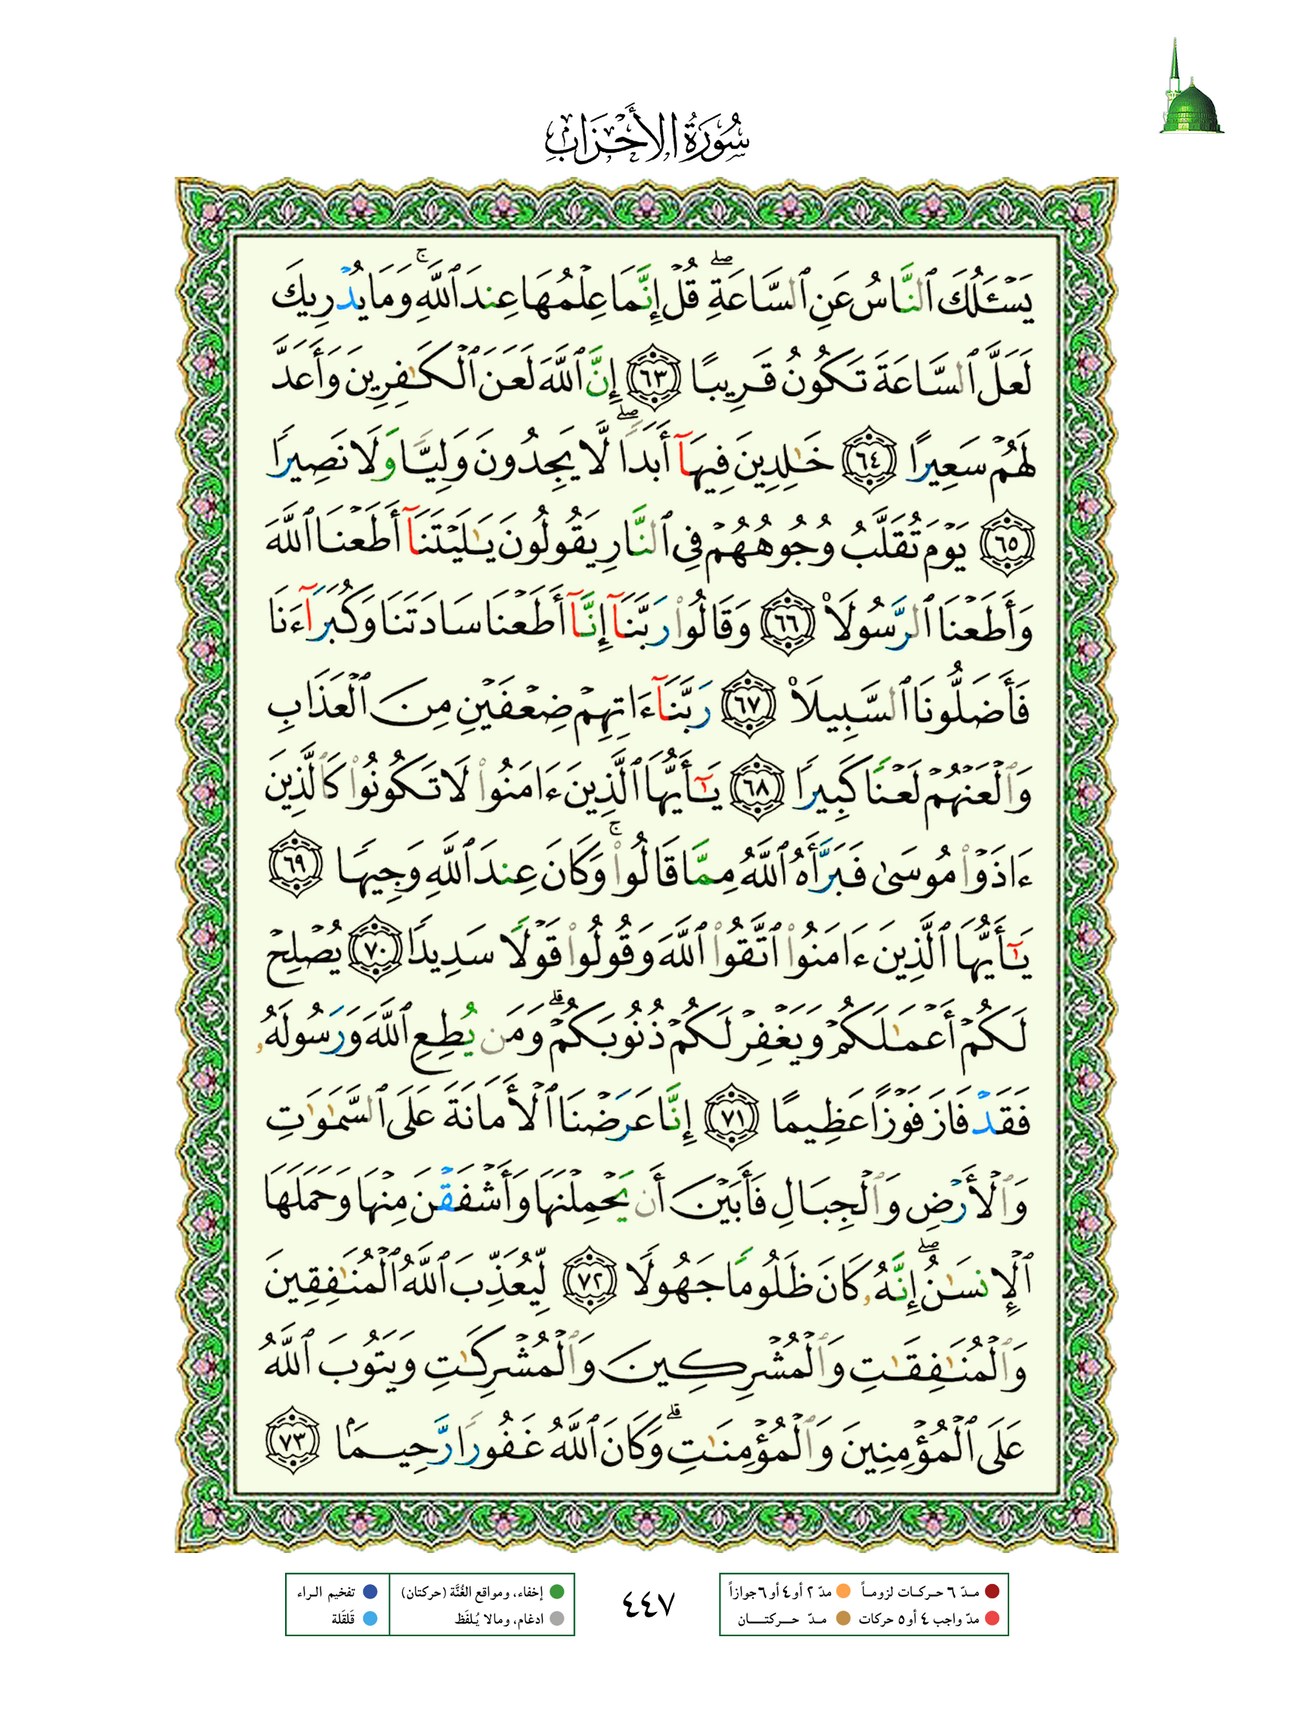 سُورَةُ الأَحْزَابِ
يَسْـَٔلُكَ ٱلنَّاسُ عَنِ ٱلسَّاعَةِۖ قُلْ إِنَّمَا عِلْمُهَا عِندَ ٱللَّهِۚ وَمَا يُدْرِيكَ
لَعَلَّ ٱلسَّاعَةَ تَكُونُ قَرِيبًا ٦٣ إِنَّ ٱللَّهَ لَعَنَ ٱلْكَٰفِرِينَ وَأَعَدَّ
لَهُمْ سَعِيرًا ٦٤ خَٰلِدِينَ فِيهَآ أَبَدًاۖ لَّا يَجِدُونَ وَلِيًّا وَلَا نَصِيرًا
٦٥ يَوْمَ تُقَلَّبُ وُجُوهُهُمْ فِى ٱلنَّارِ يَقُولُونَ يَٰلَيْتَنَآ أَطَعْنَا ٱللَّهَ
وَأَطَعْنَا ٱلرَّسُولَا۠ ٦٦ وَقَالُوا۟ رَبَّنَآ إِنَّآ أَطَعْنَا سَادَتَنَا وَكُبَرَآءَنَا
فَأَضَلُّونَا ٱلسَّبِيلَا۠ ٦٧ رَبَّنَآ ءَاتِهِمْ ضِعْفَيْنِ مِنَ ٱلْعَذَابِ
وَٱلْعَنْهُمْ لَعْنًا كَبِيرًا ٦٨ يَٰٓأَيُّهَا ٱلَّذِينَ ءَامَنُوا۟ لَا تَكُونُوا۟ كَٱلَّذِينَ
ءَاذَوْا۟ مُوسَىٰ فَبَرَّأَهُ ٱللَّهُ مِمَّا قَالُوا۟ۚ وَكَانَ عِندَ ٱللَّهِ وَجِيهًا ٦٩
يَٰٓأَيُّهَا ٱلَّذِينَ ءَامَنُوا۟ ٱتَّقُوا۟ ٱللَّهَ وَقُولُوا۟ قَوْلًا سَدِيدًا ٧٠ يُصْلِحْ
لَكُمْ أَعْمَٰلَكُمْ وَيَغْفِرْ لَكُمْ ذُنُوبَكُمْۗ وَمَن يُطِعِ ٱللَّهَ وَرَسُولَهُۥ
فَقَدْ فَازَ فَوْزًا عَظِيمًا ٧١ إِنَّا عَرَضْنَا ٱلْأَمَانَةَ عَلَى ٱلسَّمَٰوَٰتِ
وَٱلْأَرْضِ وَٱلْجِبَالِ فَأَبَيْنَ أَن يَحْمِلْنَهَا وَأَشْفَقْنَ مِنْهَا وَحَمَلَهَا
ٱلْإِنسَٰنُۖ إِنَّهُۥ كَانَ ظَلُومًا جَهُولًا ٧٢ لِّيُعَذِّبَ ٱللَّهُ ٱلْمُنَٰفِقِينَ
وَٱلْمُنَٰفِقَٰتِ وَٱلْمُشْرِكِينَ وَٱلْمُشْرِكَٰتِ وَيَتُوبَ ٱللَّهُ
عَلَى ٱلْمُؤْمِنِينَ وَٱلْمُؤْمِنَٰتِۗ وَكَانَ ٱللَّهُ غَفُورًا رَّحِيمًۢا ٧٣
مدّ ٦ حركات لزوماً مدّ ٢ أو ٤ أو ٦ جوازاً
مدّ واجب ٤ أو ٥ حركات مدّ حركتان
٤٤٧
إخفاء، ومواقع الغُنَّة (حركتان) تفخيم الراء
ادغام، ومالا يُلفَظ قلقَلة